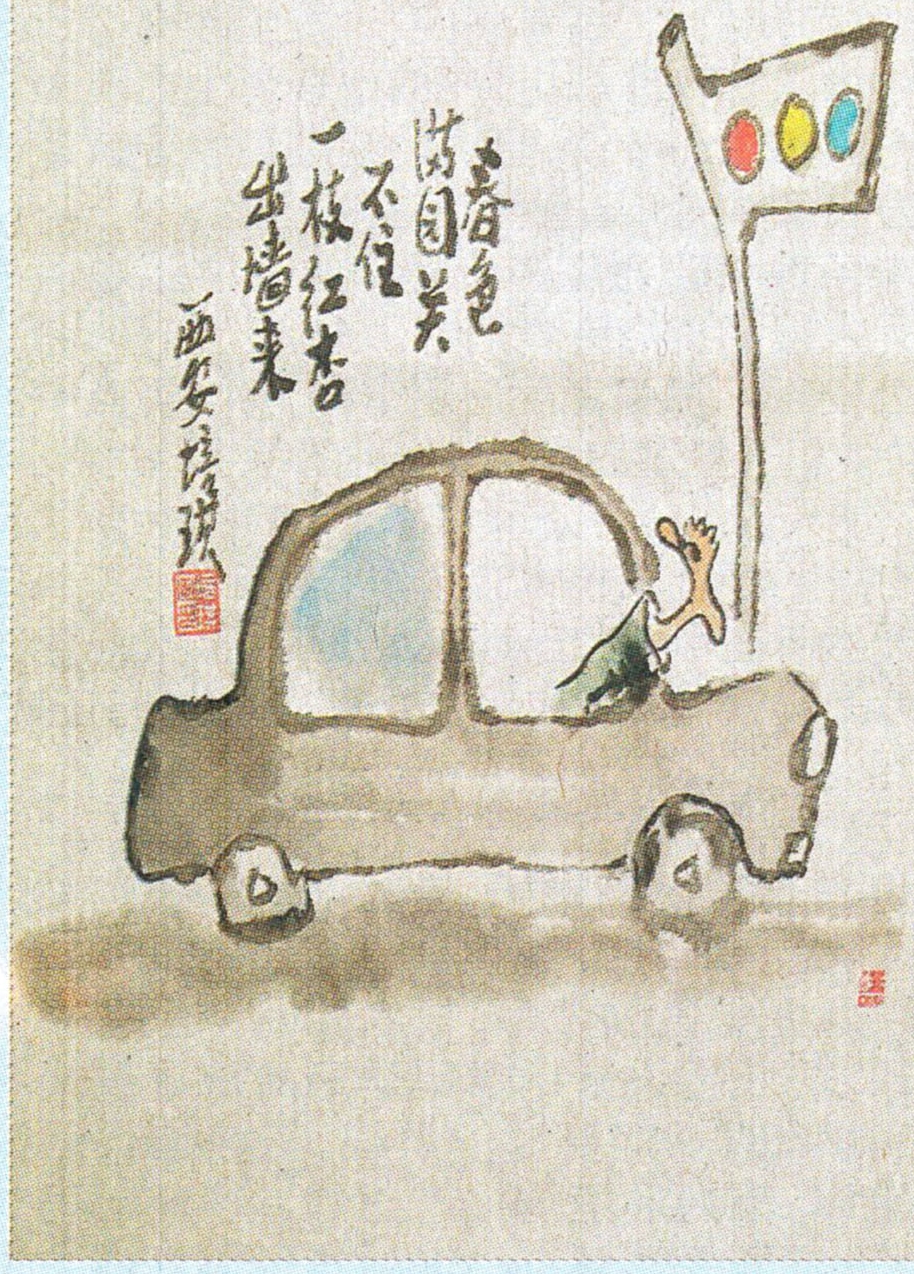 春色
满园关
不住
一枝红杏
出墙来
西安培琪